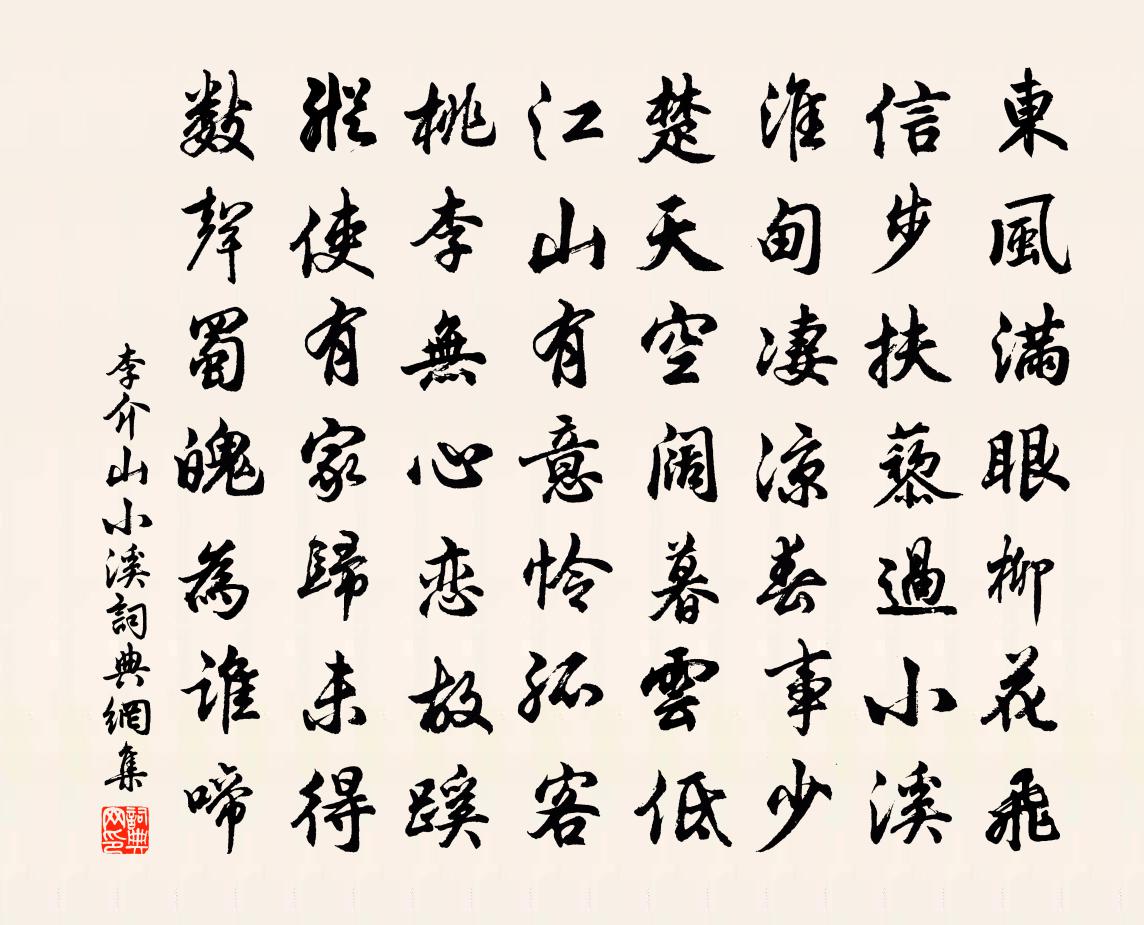 東風滿眼柳花飛
信步扶藜過小溪
淮甸凄涼春事少
楚天空闊暮雲低
江山有意怜孤客
桃李無心恋故蹊
縱使有家歸未得
數聲蜀魄為誰啼
李介山小溪詞典網集
詞典网印